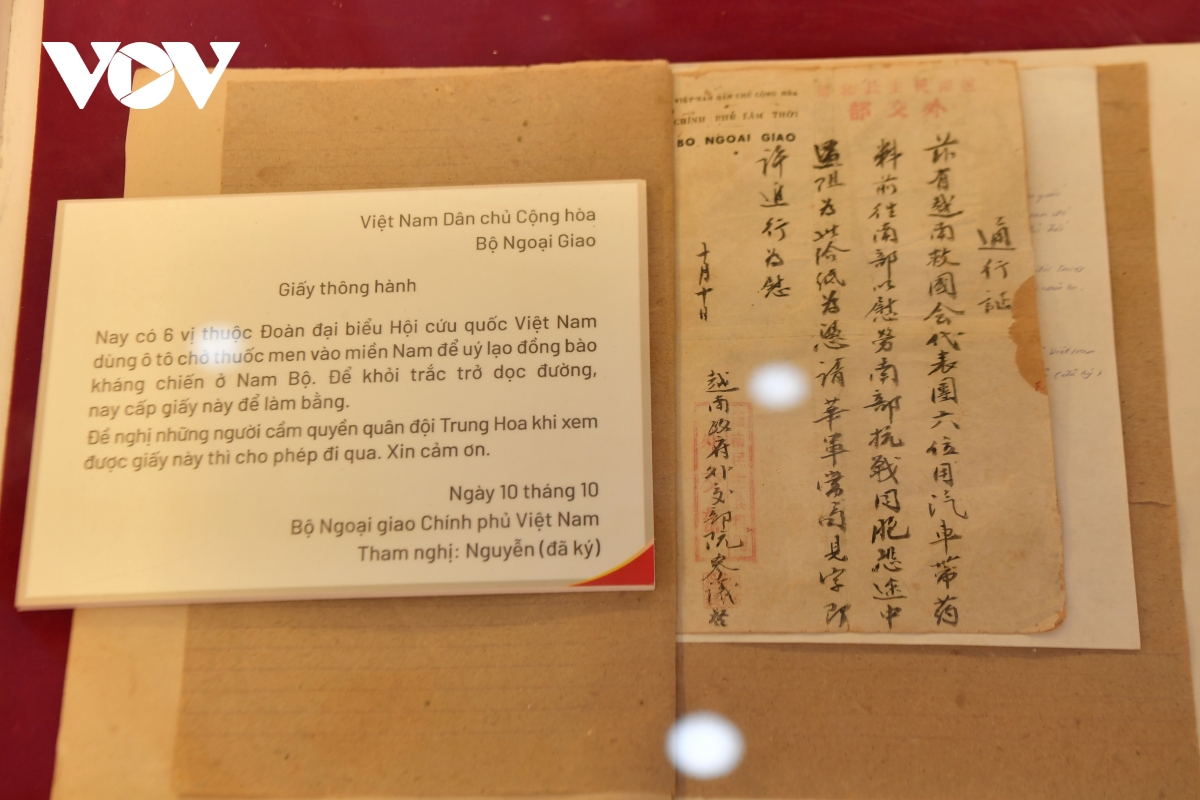 VOV
Việt Nam Dân chủ Cộng hòa
Bộ Ngoại Giao
Giấy thông hành
Nay có 6 vị thuộc Đoàn đại biểu Hội cứu quốc Việt Nam
dùng ô tô chở thuốc men vào miền Nam để uý lạo đồng bào
kháng chiến ở Nam Bộ. Để khỏi trắc trở dọc đường,
nay cấp giấy này để làm bằng.
Đề nghị những người cầm quyền quân đội Trung Hoa khi xem
được giấy này thì cho phép đi qua. Xin cảm ơn.
Ngày 10 tháng 10
Bộ Ngoại giao Chính phủ Việt Nam
Tham nghị: Nguyễn (đã ký)
VIỆT-NAM DÂN CHỦ CỘNG HÒA
CHÍNH PHỦ LÂM THỜI
BỘ NGOẠI GIAO
外交部
通行証
茲有越南救國会代表團六位用汽車带药
料前往南部以慰劳南部抗战同胞恐途中
遇阻为此给纸为憑请華軍当局見字即
许通行为慰
十月十日
越南政府外交部阮参议